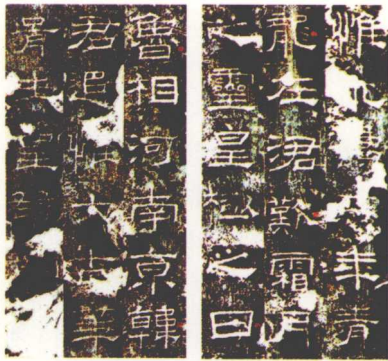 惟永壽年青
龍在涒歎霜月
之靈皇極之日
魯相河南京韓
君追惟大古華
胥生皇雄